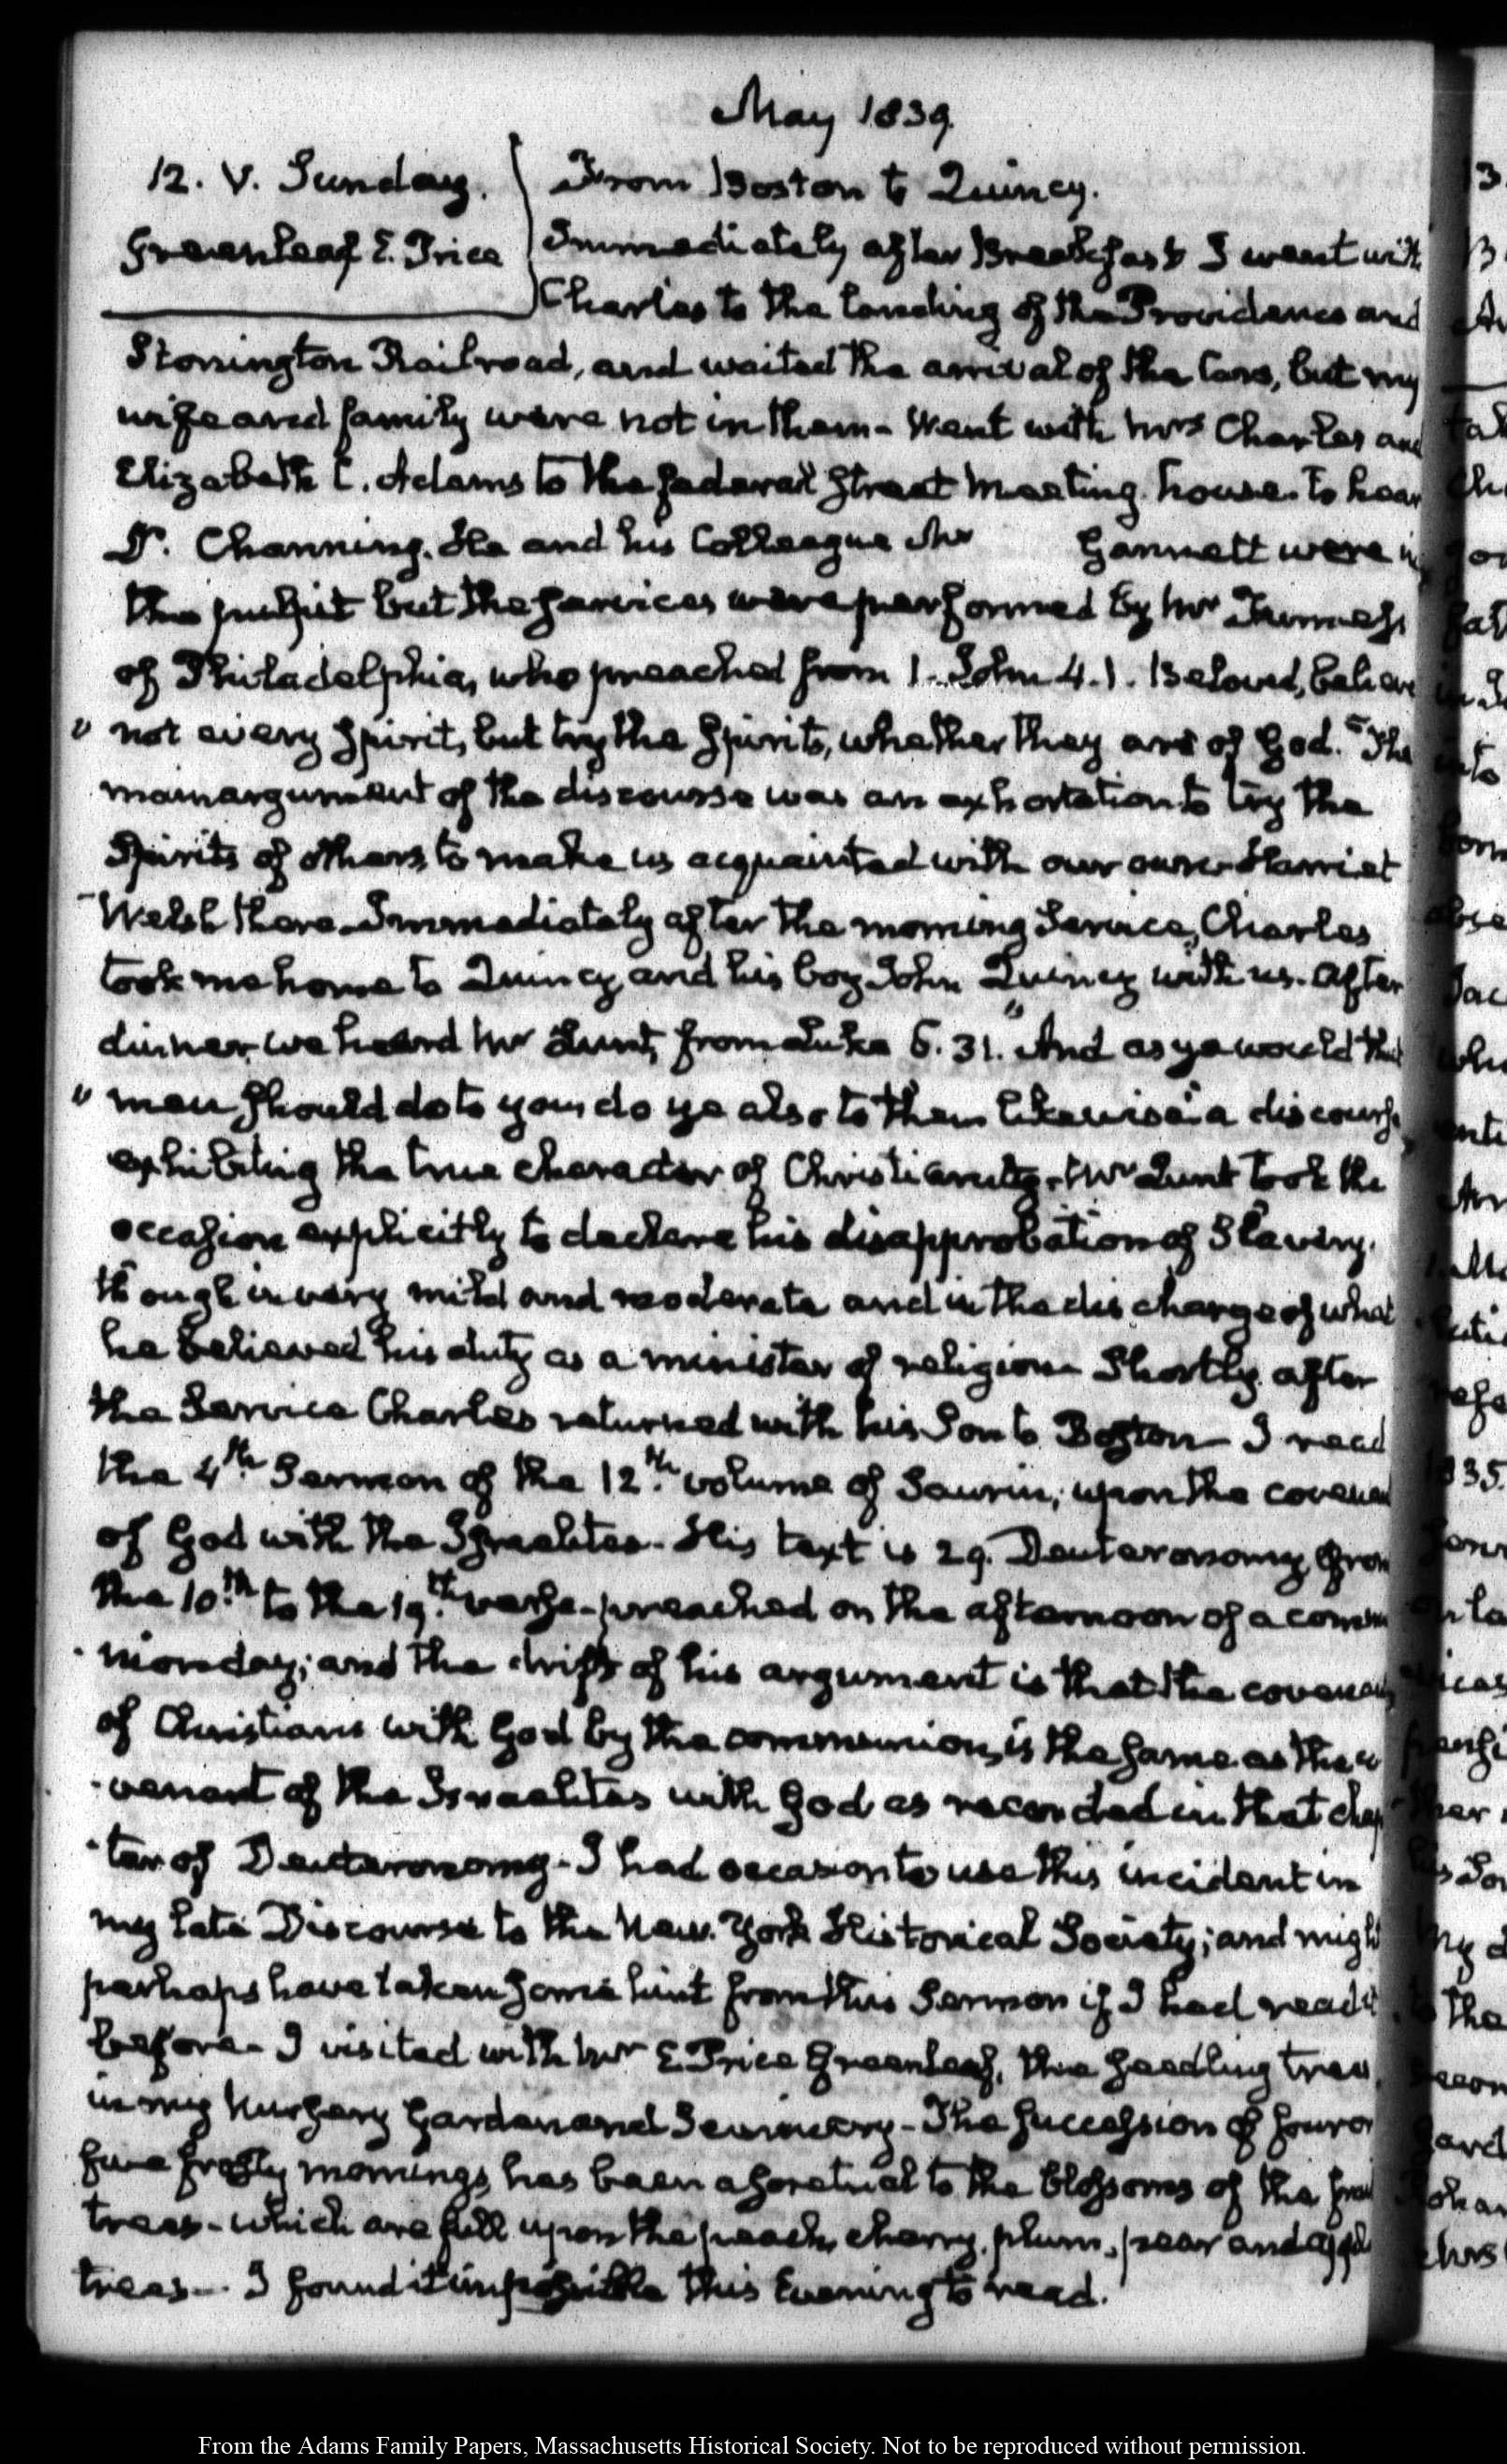 May 1839.
12. V. Sunday.
Greenleaf E. Price
From Boston to Quincy.
Immediately after Breakfast I went with
Charles to the landing of the Providence and
Stonington Railroad, and waited the arrival of the Cars, but my
wife and family were not in them- Went with Mrs Charles and
Elizabeth C. Adams to the Federal Street Meeting house to hear
Dr. Channing. He and his Colleague Mr Gannett were in
the pulpit but the services were performed by Mr Furness
of Philadelphia, who preached from 1. John 4.1. Beloved, believe
" not every Spirit, but try the Spirits, whether they are of God." The
main argument of the discourse was an exhortation to try the
Spirits of others, to make us acquainted with our own- Harriet
Welsh there- Immediately after the morning Service, Charles
took me home to Quincy, and his boy John Quincy with us. After
dinner, we heard Mr Lunt, from Luke 6.31. "And as ye would that
" men should do to you, do ye also to them likewise" a discourse
exhibiting the true character of Christianity. Mr Lunt took the
occasion explicitly to declare his disapprobation of Slavery.
though in very mild and moderate and in the discharge of what
he believed his duty as a minister of religion- Shortly after
the Service Charles returned with his Son to Boston- I read
the 4th Sermon of the 12th volume of Saurin; upon the
of God with the Israelites- His text is 29. Deuteronomy, from
the 10th to the 19th verse- preached on the afternoon of a
monday; and the drift of his argument is that the
of Christians with God by the communion, is the same as the co
-venant of the Israelites with God as recorded in that chap
-ter of Deuteronomy- I had occasion to use this incident in
my late Discourse to the New-York Historical Society; and might
perhaps have taken some hint from this Sermon if I had read it
before- I visited with Mr E Price Greenleaf, the seedling trees
in my Nursery Garden and Seminary- The succession of four or
five frosty mornings, has been a sore trial to the blossoms of the fruit
trees- which are full upon the peach, cherry, plum, pear and apple
trees- I found it impossible this Evening to read.
From the Adams Family Papers, Massachusetts Historical Society. Not to be reproduced without permission.